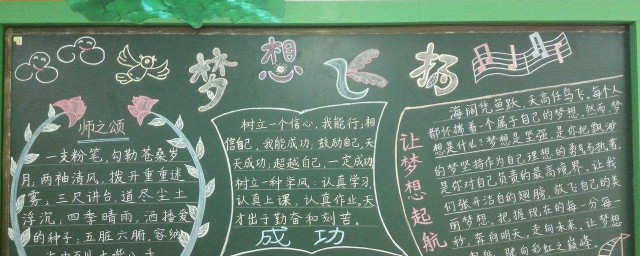 梦想飞扬
师之颂
一支粉笔,勾勒苍桑岁
月;两袖清风,拨开重重迷
雾;三尺讲台,道尽尘土
浮沉;四季晴雨,洒播爱
的种子;五脏六腑,容纳
树立一个信心,我能行;相
信自己,我能成功,鼓励自己,天
天成功,超越自己,一定成功
树立一种学风:认真学习,
认真上课,认真作业,天
才出于勤奋和刻苦。
成功
让梦想起航
海阔凭鱼跃,天高任鸟飞,每个人
都怀揣着一个属于自己的梦想,然而梦
想是什么?梦想是坚强,是你把飘渺
的梦坚持作为自己理想的勇气与执着,
是你对自己负责的最高境界,让我
们张开洁白的翅膀,放飞自己的美
丽梦想,把握现在的每一分每一
秒,奔向明天,走向未来,让梦想
起航,驶向彩虹之巅峰,